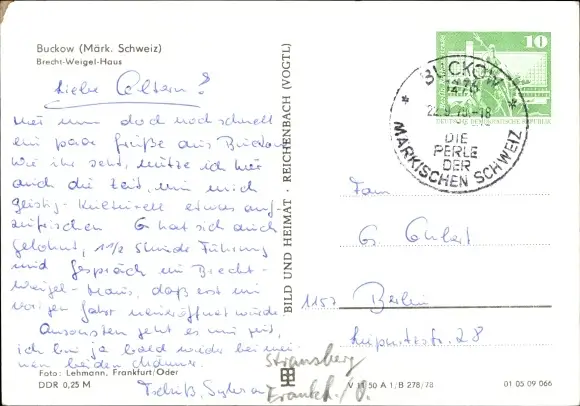 Buckow (Märk. Schweiz)
Brecht-Weigel-Haus
Liebe Eltern!
nun doch noch schnell
ein paar Grüße aus Buckow
Wie ihr seht, nütze ich hier
auch die Zeit, um mich
geistig-kulturell etwas auf-
zufrischen. Es hat sich auch
gelohnt, 1 1/2 Stunde Führung
und Gespräch im Brecht-
Weigel-Haus, daß erst im
vorigen Jahr neueröffnet wurde.
Ansonsten geht es mir gut,
ich bin ja bald wieder bei mei-
nen beiden
Tschüß,
Foto: Lehmann, Frankfurt/Oder
DDR 0,25 M
BILD UND HEIMAT · REICHENBACH (VOGTL)
10
DEUTSCHE DEMOKRATISCHE REPUBLIK
BUCKOW
1276
-18
DIE
PERLE
DER
MÄRKISCHEN SCHWEIZ
Fam
G.
1157 Berlin
28
Strausberg
Frankf./O.
V 11 50 A 1/B 278/78
01 05 09 066